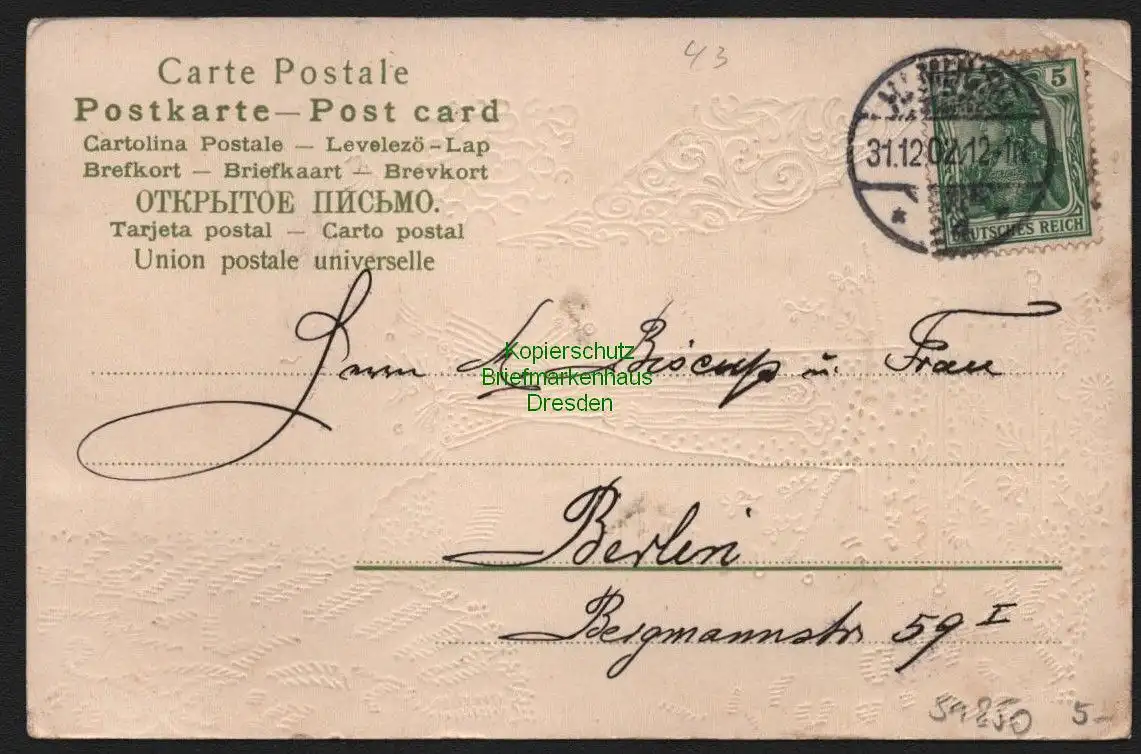 43
Carte Postale
Postkarte — Post card
Cartolina Postale — Levelező-Lap
Brefkort — Briefkaart — Brevkort
ОТКРЫТОЕ ПИСЬМО.
Tarjeta postal — Carto postal
Union postale universelle
5
31.12.02.12-1N
DEUTSCHES REICH
Herrn A. Biscup u. Frau
Kopierschutz
Briefmarkenhaus
Dresden
Berlin
Bergmannstr 59 I
59850 5-